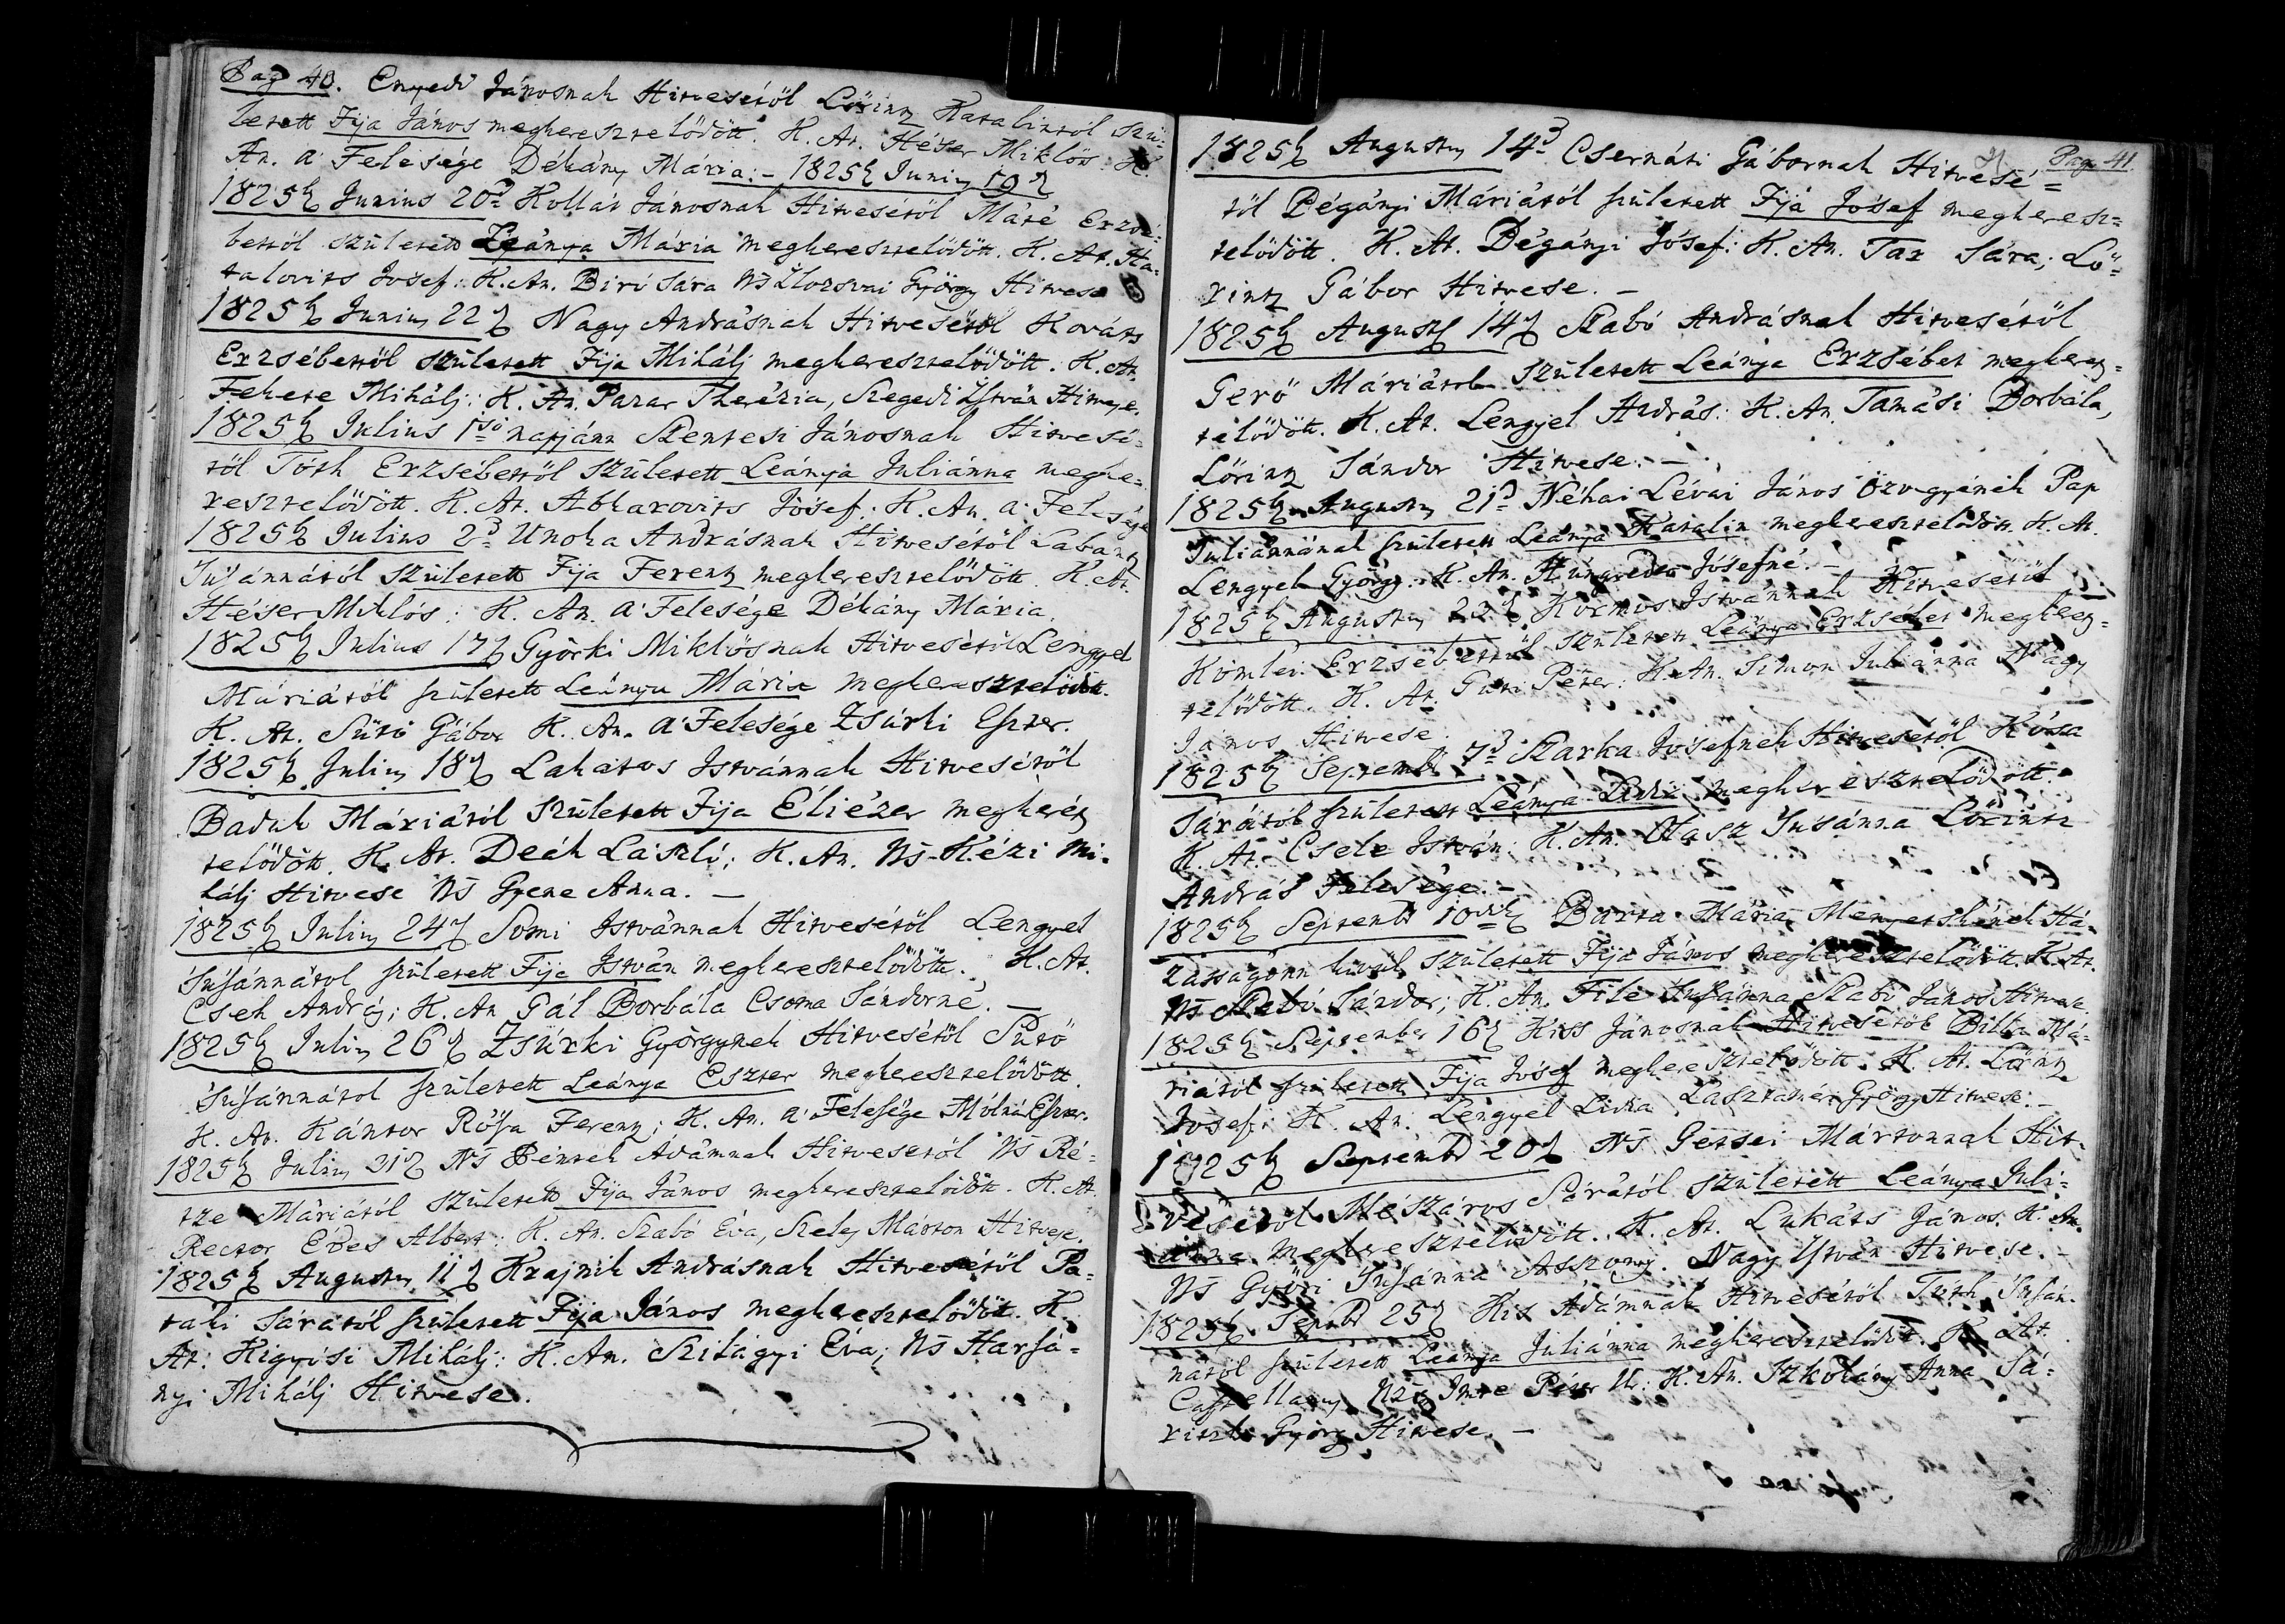 Pag 40. Enyedi Jánosnak Hitvesétöl Lörintz Katalintól szü-
letett Fija János megkeresztelödött. K. At. Héser Miklós: K.
An. a' Felesége Dékány Mária. – 1825b Junius 19d
1825b Junius 20d Kollár Jánosnak Hitvesétöl Máté Erzsé-
bettöl született Leánya Mária megkeresztelödött. K. At. Ha-
talovits Josef: K. An. Biró Sára Ns Ilosvai György Hitvese
1825b Junius 22d Nagy Andrásnak Hitvesétöl Kováts
Erzsébettöl született Fija Mihálj megkeresztelödött. K. At.
Fekete Mihálj: K. An. Pazar Therézia, Szegedi István Hitvese.
1825b Julius 1ső napjánn Szentesi Jánosnak Hitvesé-
töl Tóth Erzsébettöl született Leánya Juliánna megke-
resztelödött. K. At. Abkarovits Jósef. K. An. a' Felesége
1825b Julius 2d Unoka Andrásnak Hitvesétöl Labantz
Susánnától született Fija Ferentz megkeresztelödött. K. At.
Héser Miklós: K. An. a' Felesége Dékány Mária.
1825b Julius 17d Györki Miklósnak Hitvesétöl Lengyel
Máriától született Leánya Mária megkeresztelödött.
K. At. Sütö Gábor K. An. a' Felesége Zsúrki Eszter.
1825b Julius 18d Lakatos Istvánnak Hitvesétöl
Baduk Máriától született Fija Éliézer megkeresz
telödött. K. At. Deék László; K. An. Ns Kézi Mi-
hálj Hitvese Ns Gyene Anna. –
1825b Julius 24d Somi Istvánnak Hitvesétöl Lengyel
Susánnátol született Fija István megkeresztelödött. K. At.
Cseh András; K. An Gál Borbála Csoma Sándorné. –
1825b Julius 26d Zsúrki Györgynek Hitvesétöl Sütö
Susánnátol született Leánya Eszter megkeresztelödött.
K. At. Kántor Rósa Ferentz; K. An. a' Felesége Molnár Eszter.
1825b Julius 31d Ns Péntek Ádámnak Hitvesétöl Ns Ré-
tze Máriától született Fija János megkeresztelödött. K. At.
Rector Édes Albert: K. An. Szabó Éva, Szeles Márton Hitvese.
1825b Augustus 11d Krajnik Andrásnak Hitvesétöl Pa-
taki Sárától született Fija János megkeresztelödött. K.
At: Kigyósi Mihálj: K. An. Szilágyi Éva; Ns Harsá-
nyi Mihálj Hitvese.
Pag 41.
1825b Augustus 14d Csernáti Gábornak Hitvesé-
töl Dégányi Máriától született Fija Jósef megkeresz-
telödött. K. At. Dégányi Jósef: K. An. Tar Sára; Lö-
rintz Gábor Hitvese. –
1825b August 14d Szabó Andrásnak Hitvesétöl
Gerö Máriától született Leánya Erzsébet megkeresz-
telödött. K. At. Lengyel András: K. An. Tamási Borbála,
Lörintz Sándor Hitvese. –
1825b Augustus 21d Néhai Lévai János özvegyének Pap
Juliánnának született Leánya Katalin megkeresztelödött. K. At.
Lengyel György. K. An. Hungredes Jósefné. –
1825b Augustus Kormos Istvánnak Hitvesétöl
Komlei Erzsébettöl született Leánya Erzsébet megkeresz-
telödött. K. At. Guti Péter: K. An. Simon Juliánna Nagy
János Hitvese.
1825b Septemb 7d Szarka Josefnek Hitvesétöl Kósa
Sárától született Leánya megkeresztelödött.
K. At. Csele István: K. An. Olasz Susánna Lörintz
András Felesége. –
1825b Septemb 10dik Barta Mária Menyetskének Há-
zasságonn kivül született Fija János megkeresztelödött. K. At.
Ns Szabó Sándor; K. An. File Susánna Szabó János Hitvese.
1825b September 16d Kiss Jánosnak Hitvesétöl Bilku Má-
riától született Fija Jósef megkeresztelödött. K. At. Lörintz
Josef: K. An. Lengyel Lidia Lasztanér György Hitvese. –
1825b Septemb 20d Ns Getsei Mártonnak Hit-
vesétöl Mészáros Sárától született Leánya Juli-
ánna megkeresztelödött. K. At. Lukáts János. K. An.
Ns Györi Susánna Asszony. Nagy István Hitvese. –
1825b Septb 25d Kis Ádámnak Hitvesétöl Tóth Susán-
nától született Leánya Juliánna megkeresztelödött. K. At.
Castellanus Imre Péter Ur: K. An. Szkokány Anna Sá-
György Hitvese. –